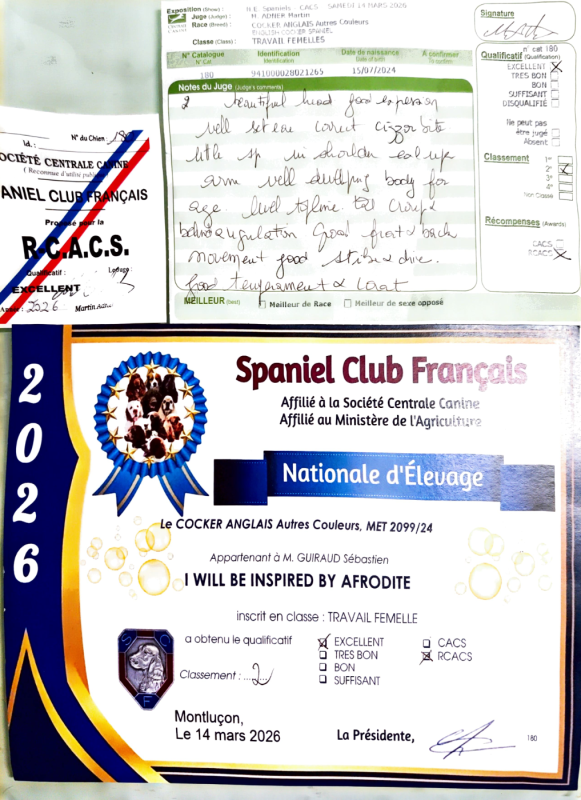 Exposition (Show) : N.E. Spaniels CACS SAMEDI 14 MARS 2026
Juge (Judge) : M. ADNER Martin
Race (Breed) : COCKER ANGLAIS Autres Couleurs
ENGLISH COCKER SPANIEL
Classe (Class) : TRAVAIL FEMELLES
N° Catalogue Identification Date de naissance A confirmer
180 941000028021265 15/07/2024
Notes du Juge (Judge's comments)
2 beautiful head good expression
well set ear correct
little up in shoulder
arm well body for
age. level topline.
behind angulation Good front & back
movement good &
good temperament & coat
MEILLEUR (best) Meilleur de Race Meilleur de sexe opposé
Signature
n° cat 180
Qualificatif (Qualification)
EXCELLENT
TRES BON
BON
SUFFISANT
DISQUALIFIÉ
Ne peut pas
être jugé
Absent
Classement 1er
2e
3e
4e
Non Classé
Récompenses (Awards)
CACS
RCACS
Id. : N° du Chien : 180
SOCIÉTÉ CENTRALE CANINE
( Reconnue d'utilité publique )
ANIEL CLUB FRANÇAIS
Proposé pour la
R.C.A.C.S.
Qualificatif : Le Juge :
EXCELLENT
Année : 2026 Martin Adner
2026
Spaniel Club Français
Affilié à la Société Centrale Canine
Affilié au Ministère de l'Agriculture
Nationale d'Élevage
Le COCKER ANGLAIS Autres Couleurs, MET 2099/24
Appartenant à M. GUIRAUD Sébastien
I WILL BE INSPIRED BY AFRODITE
inscrit en classe : TRAVAIL FEMELLE
a obtenu le qualificatif EXCELLENT CACS
TRES BON RCACS
BON
SUFFISANT
Classement : 2
S C F
Montluçon,
Le 14 mars 2026
La Présidente,
180